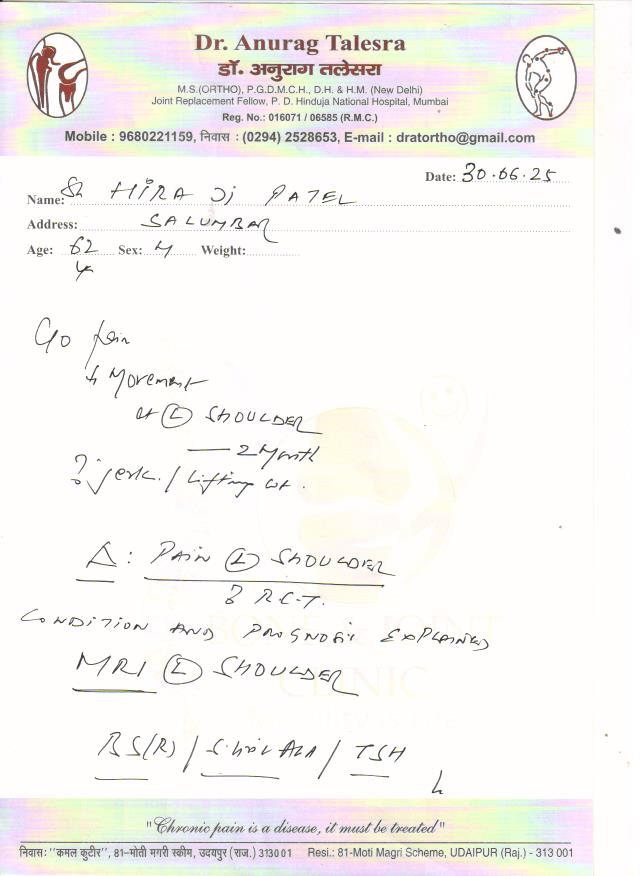 Dr. Anurag Talesra
डॉ. अनुराग तलेसरा
M.S.(ORTHO), P.G.D.M.C.H., D.H. & H.M. (New Delhi)
Joint Replacement Fellow, P. D. Hinduja National Hospital, Mumbai
Reg. No.: 016071 / 06585 (R.M.C.)
Mobile : 9680221159, निवास : (0294) 2528653, E-mail : dratortho@gmail.com
Date: 30.06.25
Name: Sh HIRA Ji PATEL
Address: SALUMBAR
Age: 62 Sex: M Weight:
C/o Pain
↓ Movement
at (L) SHOULDER
— 2 Month
? jerk / Lifting wt.
Δ: PAIN (L) SHOULDER
? R.C.T.
CONDITION AND PROGNOSIS EXPLAINED
BONE & JOINT
MRI (L) SHOULDER
CLINIC
BS(R) / / TSH
"Chronic pain is a disease, it must be treated"
निवास: "कमल कुटीर", 81-मोती मगरी स्कीम, उदयपुर (राज.) 313001 Resi.: 81-Moti Magri Scheme, UDAIPUR (Raj.) - 313 001